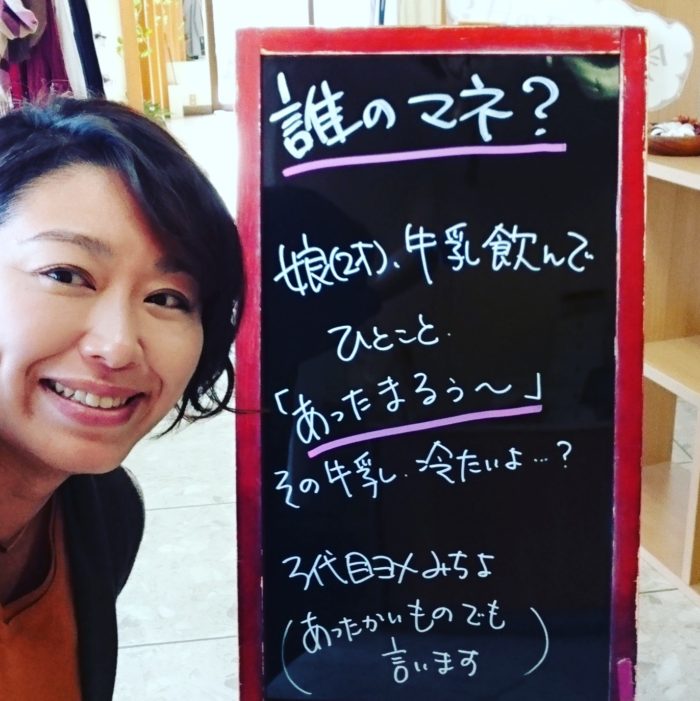 誰のマネ?
娘(2才)、牛乳飲んで
ひとこと.
「あったまるぅ〜」
その牛乳、冷たいよ…?
3代目ヨメみちよ
(あったかいものでも
言います)